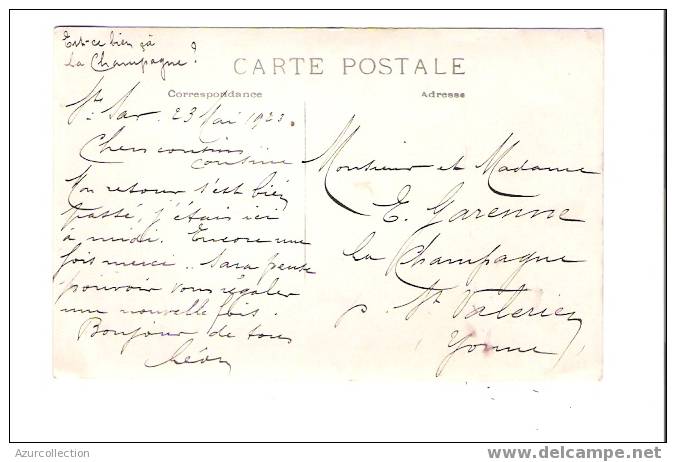 Est-ce bien çà
la Champagne?
CARTE POSTALE
Correspondance
Adresse
St Sav. 23 Mai 1923.
Chers cousins
cousine
Mon retour s'est bien
passé, j'étais ici
à midi. Encore une
fois merci.. Sara pense
pouvoir vous régaler
une nouvelle fois.
Bonjour de tous
Léon
Monsieur et Madame
E. Garenne
La Champagne
p. St Valérien
Yonne
Azurcollection
www.delcampe.net